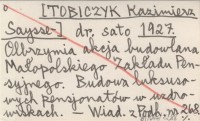 [TOBICZYK Kazimierz
Saysse-] dr. sato 1927
Olbrzymia akcja budowlana
Małopolskiego Zakładu Pen-
syjnego. Budowa luksuso-
wych pensjonatów w uzdro-
wiskach. — Wiad. z Podh. nr 268